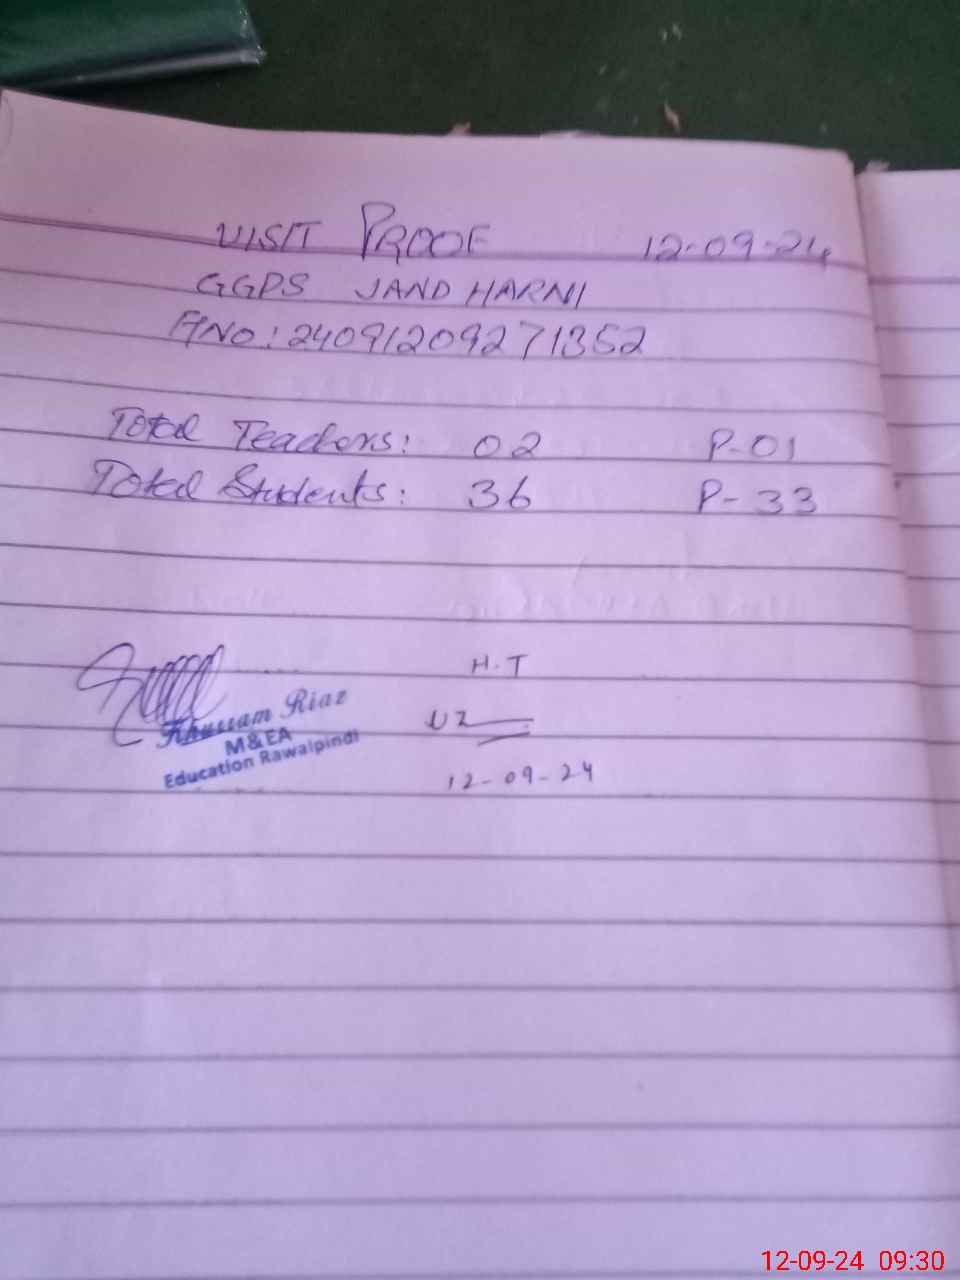 VISIT PROOF 12-09-24
GGPS JAND HARNI
A/NO: 24091209271352
Total Teachers: 02 P-01
Total Students: 36 P-33
H.T
Khurram Riaz
M&EA
Education Rawalpindi
12-09-24
12-09-24 09:30